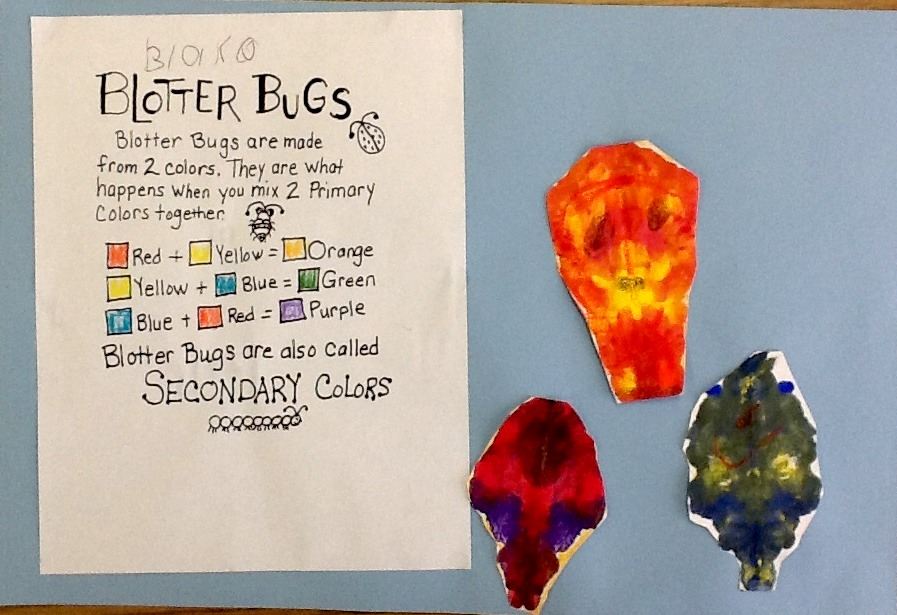 BLOTTER BUGS
Blotter Bugs are made
from 2 colors. They are what
happens when you mix 2 Primary
Colors together.
Red + Yellow = Orange
Yellow + Blue = Green
Blue + Red = Purple
Blotter Bugs are also called
SECONDARY COLORS